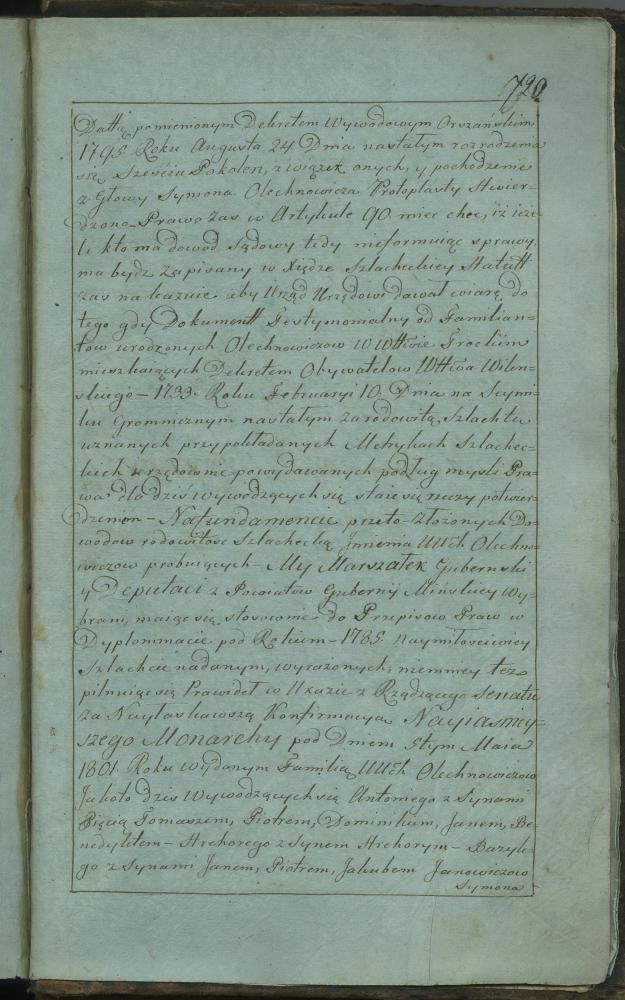 720
Dattą pomienionym Dekretem Wywodowym Orszańskim
1795. Roku Augusta 24 Dnia nastałym rozrodzenia
się Szesciu Pokolen, z wiązek onych, y pochodzenie
z Głowy Symona Olechnowicza Protoplasty Stwier-
dzono_ Prawo zas w Artykule 90. miec chce, iż ieże-
li kto ma dowod Sądowy tedy nieformuiąc sprawy,
ma bydz Zapisany w Xiędze Szlacheckiey Statutt
zas na każnie aby Urząd Urzędowi dawał wiarę do
tego gdy Dokumentt Testymonialny od Familian=
tow urodzonych Olechnowiczow W Wttwie Trockim
mieszkaiących Dekretem Obywatelow Wttwa Wilen-
skiego — 1733. Roku Februaryi 10. Dnia na Seymi-
ku Gromnicznym nastałym za rodowitą Szlachtę
uznanych przypokładanych Metrykach Szlachec-
kich urzędownie powydawanych podług mysli Pra-
wa dla dzis wywodzących się staie się rzeczy potwier-
dzeniem — Nafundamencie przeto złożonych Do-
wodow rodowitosc Szlachecką Jmienia WWch Olechno-
wiczow probuiących — My Marszałek Gubernski
y Deputaci z Powiatow Gubernij Minskiey Wy-
brani, maiąc się stosownie do Przepisow Praw w
Dyplommacie pod Rokiem — 1785. Naymiłosciwiey
Szlachcie nadanym, wyrażonych, niemniey też
pilnuiąc się Prawideł w Ukazie z Rządzącego Senatu
za Nayłaskawszą Konfirmacyą Nayiasniey-
szego Monarchy pod Dniem 5tym Maia
1801. Roku wydanym Familią WWch Olechnowiczow
Jakoto dzis Wywodzących się Antoniego z Synami
Pięcią Tomaszem, Piotrem, Dominikiem, Janem, Be-
nedyktem — Hrehorego z Synem Hrehorym — Bazyle-
go z Synami Janem, Piotrem, Jakubem Janowiczow
Symona